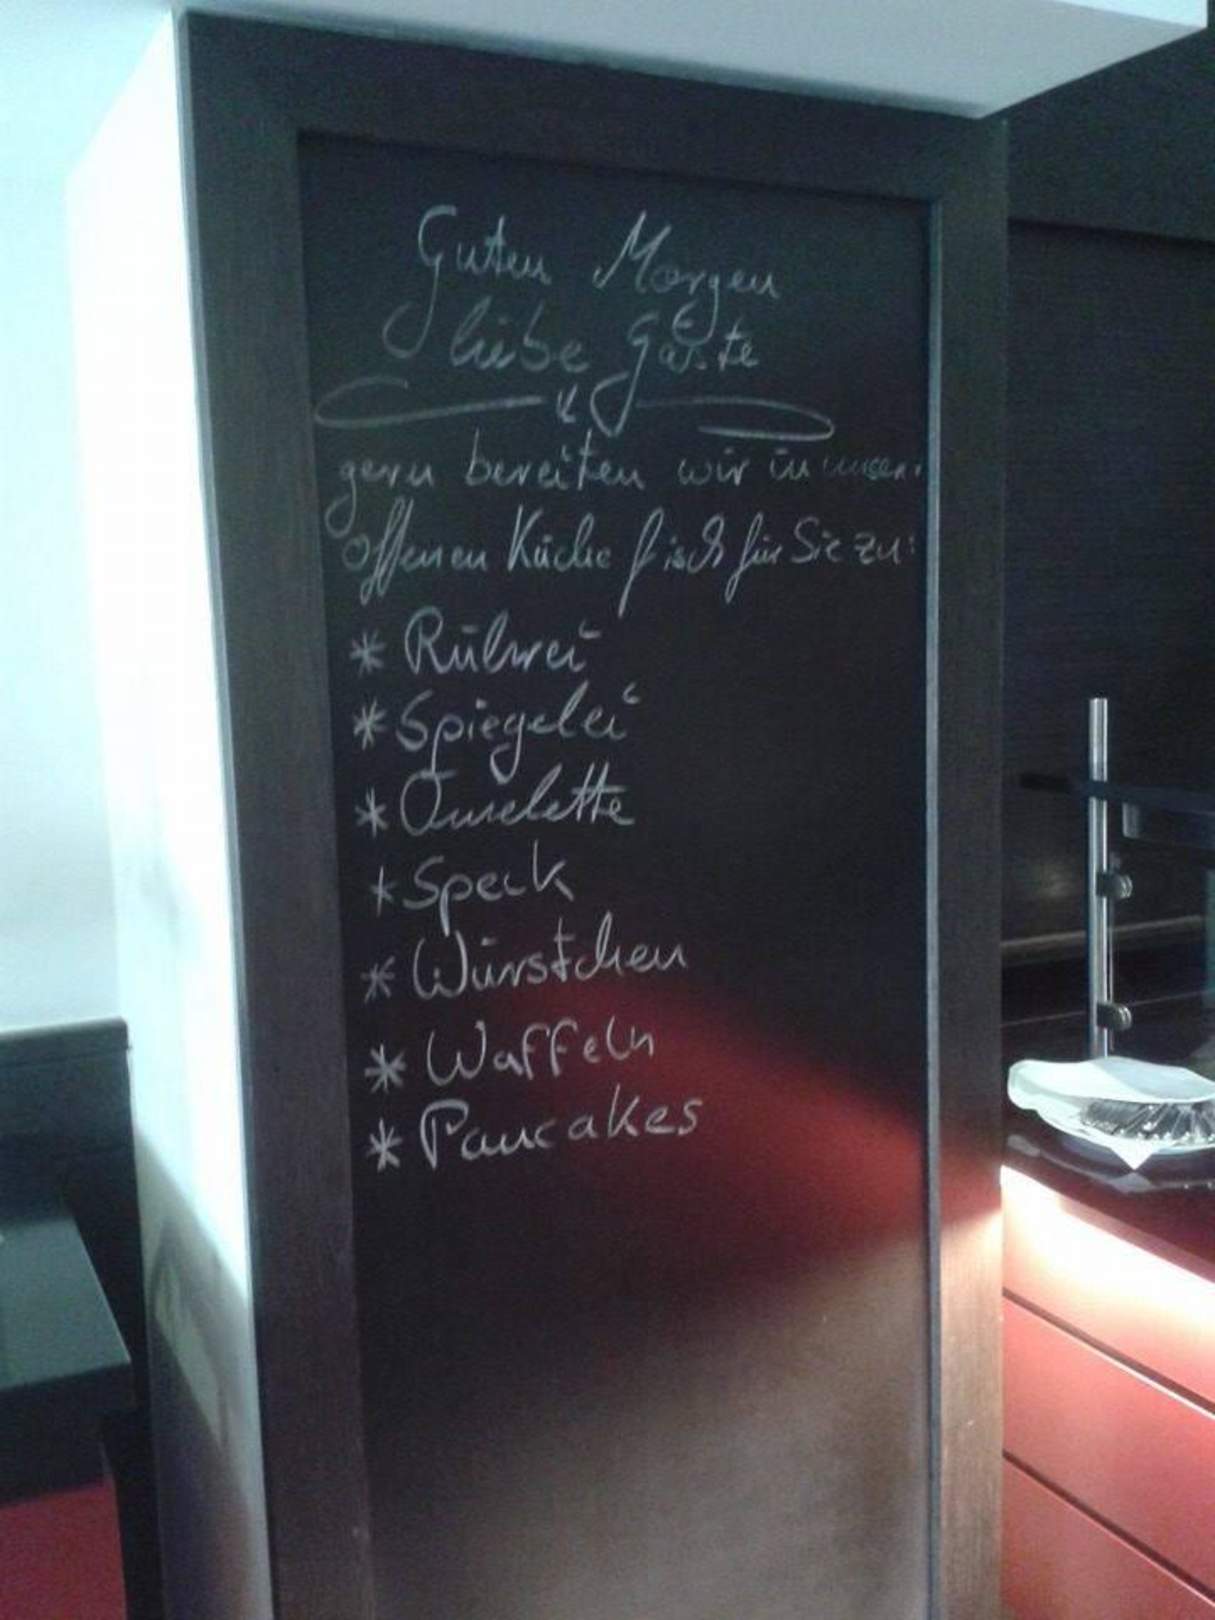 Guten Morgen
liebe Gäste
gern bereiten wir in unserer
offenen Küche fisch für Sie zu:
* Rührei
* Spiegelei
* Omelette
* Speck
* Würstchen
* Waffeln
* Pancakes